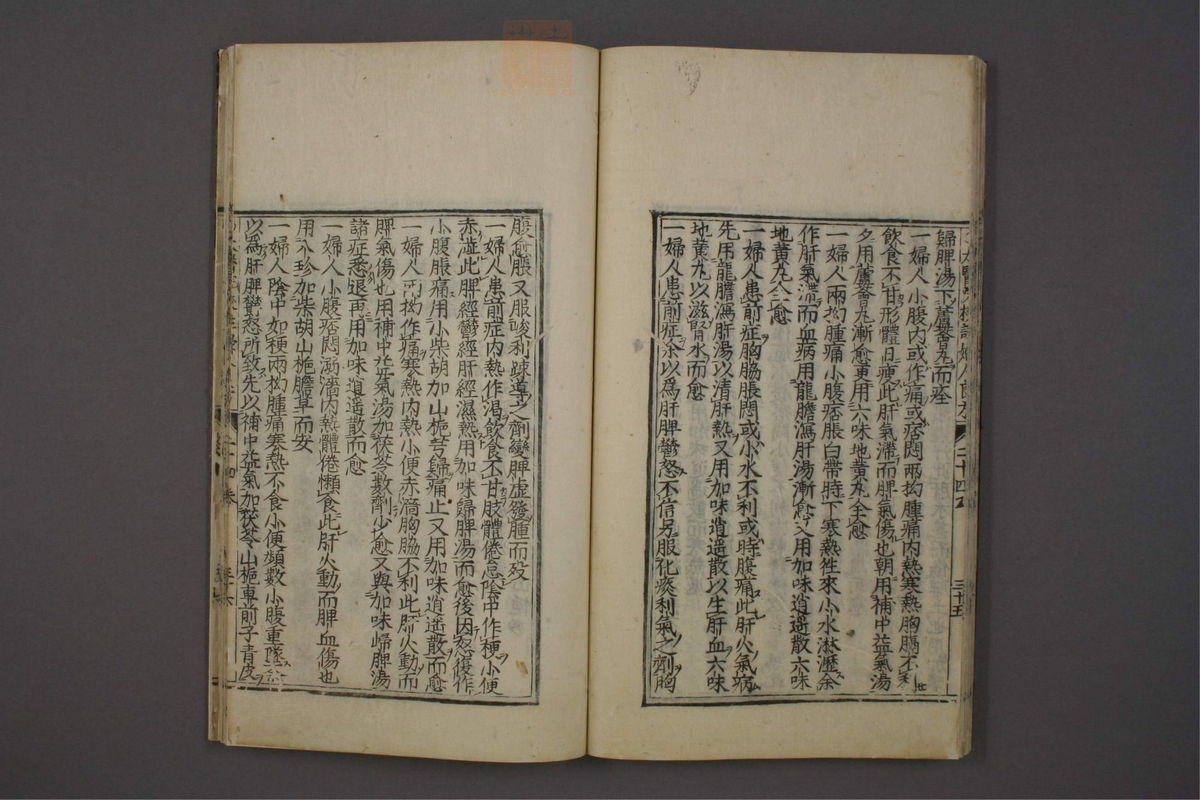 歸脾湯下蘆薈丸而痊
一婦人小腹內或作痛或痞悶兩拗腫痛內熱寒熱胸膈不利
飲食不甘形體日瘦此肝氣滯而脾氣傷也朝用補中益氣湯
夕用蘆薈丸漸愈更用六味地黃丸全愈
一婦人兩拗腫痛小腹痞脹白帶時下寒熱徃來小水淋瀝余
作肝氣滯而血病用龍膽瀉肝湯漸愈又用加味逍遙散六味
地黃丸全愈
一婦人患前症胸脇脹悶或小水不利或時腹痛此肝火氣病
先用龍膽瀉肝湯以清肝熱又用加味逍遙散以生肝血六味
地黃丸以滋腎水而愈
一婦人患前症余以為肝脾鬱怒不信另服化痰利氣之劑胸
腹愈脹又服峻利疎導之劑變脾虛發腫而殁
一婦人患前症內熱作渴飲食不甘肢體倦怠陰中作梗小便
赤澁此脾經鬱經肝經濕熱用加味歸脾湯而愈後因怒復作
小腹脹痛用小柴胡加山梔芎歸痛止又用加味逍遙散而愈
一婦人兩拗作痛寒熱內熱小便赤滴胸脇不利此肝火動而
脾氣傷也用補中益氣湯加茯苓數劑少愈又與加味歸脾湯
諸症悉退再用加味逍遙散而愈
一婦人小腹痞悶溺濇內熱體倦懶食此肝火動而脾血傷也
用八珍加柴胡山梔膽草而安
一婦人陰中如梗兩拗腫痛寒熱不食小便頻數小腹重墜
以為肝脾鬱怒所致先以補中益氣加茯苓山梔車前子青皮